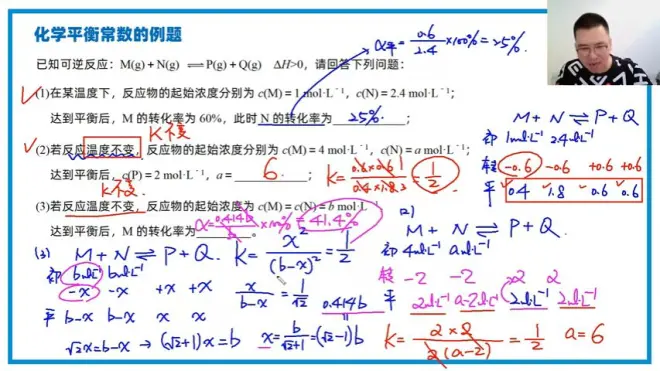 化学平衡常数的例题
α平=0.6/2.4×100%=25%.
已知可逆反应：M(g)＋N(g) ⇌P(g)＋Q(g) ΔH>0，请回答下列问题：
(1)在某温度下，反应物的起始浓度分别为 c(M)＝1 mol·L⁻¹，c(N)＝2.4 mol·L⁻¹；
达到平衡后，M 的转化率为 60%，此时 N 的转化率为 25% ；
K不变
M + N ⇌ P + Q
初 1mol·L⁻¹ 2.4mol·L⁻¹
转 -0.6 -0.6 +0.6 +0.6
平 0.4 1.8 0.6 0.6
(2)若反应温度不变，反应物的起始浓度分别为 c(M)＝4 mol·L⁻¹，c(N)＝a mol·L⁻¹；
达到平衡后，c(P)＝2 mol·L⁻¹，a＝ 6. ；
K不变
K=0.6×0.6/0.4×1.8=1/2
(3)若反应温度不变，反应物的起始浓度为 c(M)＝c(N)＝b mol·L
达到平衡后，M 的转化率为 。
α=0.414b/b×100%=41.4%
(3) M + N ⇌ P + Q.
初 bmol·L⁻¹ bmol·L⁻¹
-x -x +x +x
平 b-x b-x x x
K=x²/(b-x)²=1/2
x/b-x=1/√2
√2x=b-x → (√2+1)x=b x=b/√2+1=(√2-1)b
0.414b
2)
M + N ⇌ P + Q.
初 4mol·L⁻¹ amol·L⁻¹
转 -2 -2 2 2
平 2mol·L⁻¹ a-2mol·L⁻¹ 2mol·L⁻¹ 2mol·L⁻¹
K=2×2/2(a-2)=1/2 a=6